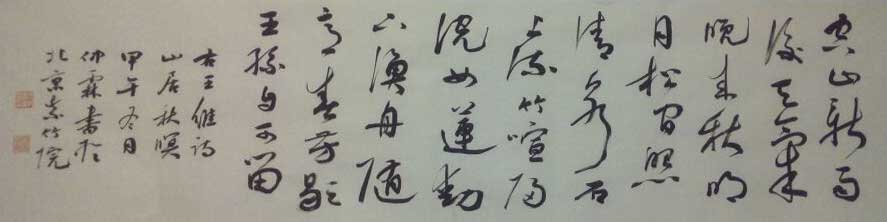 空山新雨
後天氣
晚来秋明
月松间照
清泉石
上流竹喧归
浣女蓮動
下渔舟随
意春芳歇
王孫自可留
右王維诗
山居秋暝
甲午冬日
仲霖書於
北京紫竹院